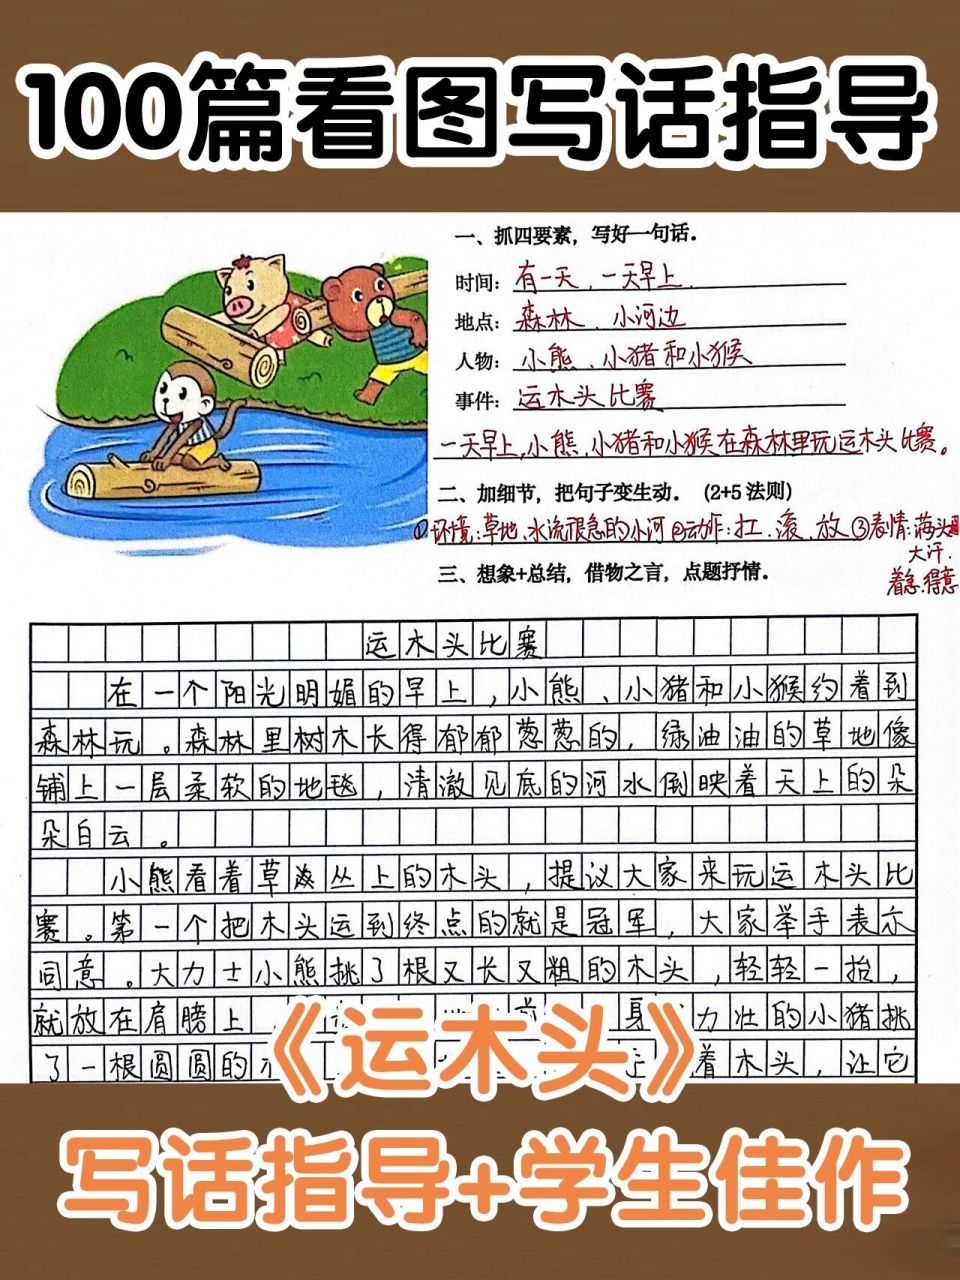 100篇看图写话指导
一、抓四要素，写好一句话．
时间：有一天、一天早上
地点：森林、小河边
人物：小熊、小猪和小猴
事件：运木头比赛
一天早上，小熊、小猪和小猴在森林里玩运木头比赛。
二、加细节，把句子变生动．（2+5 法则）
①环境：草地、水流很急的小河 ②动作：扛、滚、放 ③表情：满头
大汗．
着急、得意
三、想象+总结，借物之言，点题抒情．
运木头比赛
在一个阳光明媚的早上，小熊、小猪和小猴约着到
森林玩。森林里树木长得郁郁葱葱的，绿油油的草地像
铺上一层柔软的地毯，清澈见底的河水倒映着天上的朵
朵白云。
小熊看着草丛上的木头，提议大家来玩运木头比
赛。第一个把木头运到终点的就是冠军，大家举手表示
同意。大力士小熊挑了根又长又粗的木头，轻轻一抬，
就放在肩膀上 身 力壮的小猪挑
了一根圆圆的 着木头，让它
《运木头》
写话指导+学生佳作